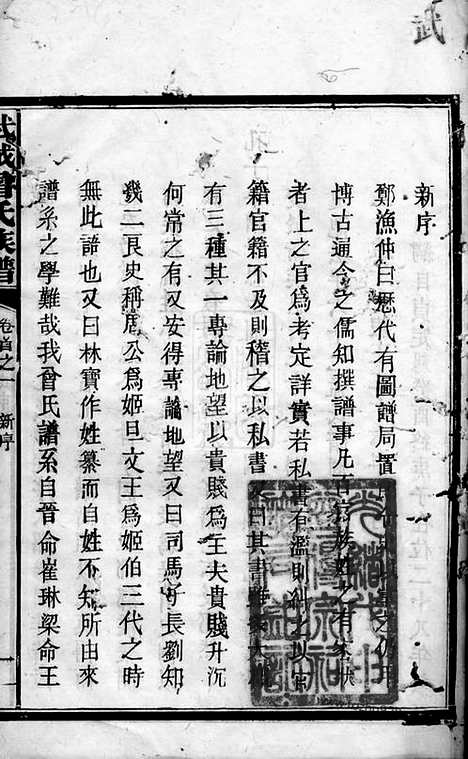 新序
鄭漁仲曰歷代有圖譜局置
博古通今之儒知撰譜事凡百官族姓之有家狀
者上之官為考定詳實若私書有濫則糾之以官
籍官籍不及則稽之以私書又曰其書雖多大
有三種其一專論地望以貴賤為主夫貴賤升沉
何常之有又安得專論地望又曰司馬子長劉知
幾二良史稱周公為姬旦文王為姬伯三代之時
無此諱也又曰林寶作姓纂而自姓不知所由來
譜系之學難哉我曾氏譜系自晉命崔琳梁命王
武城曾氏族譜
卷首之一
新序